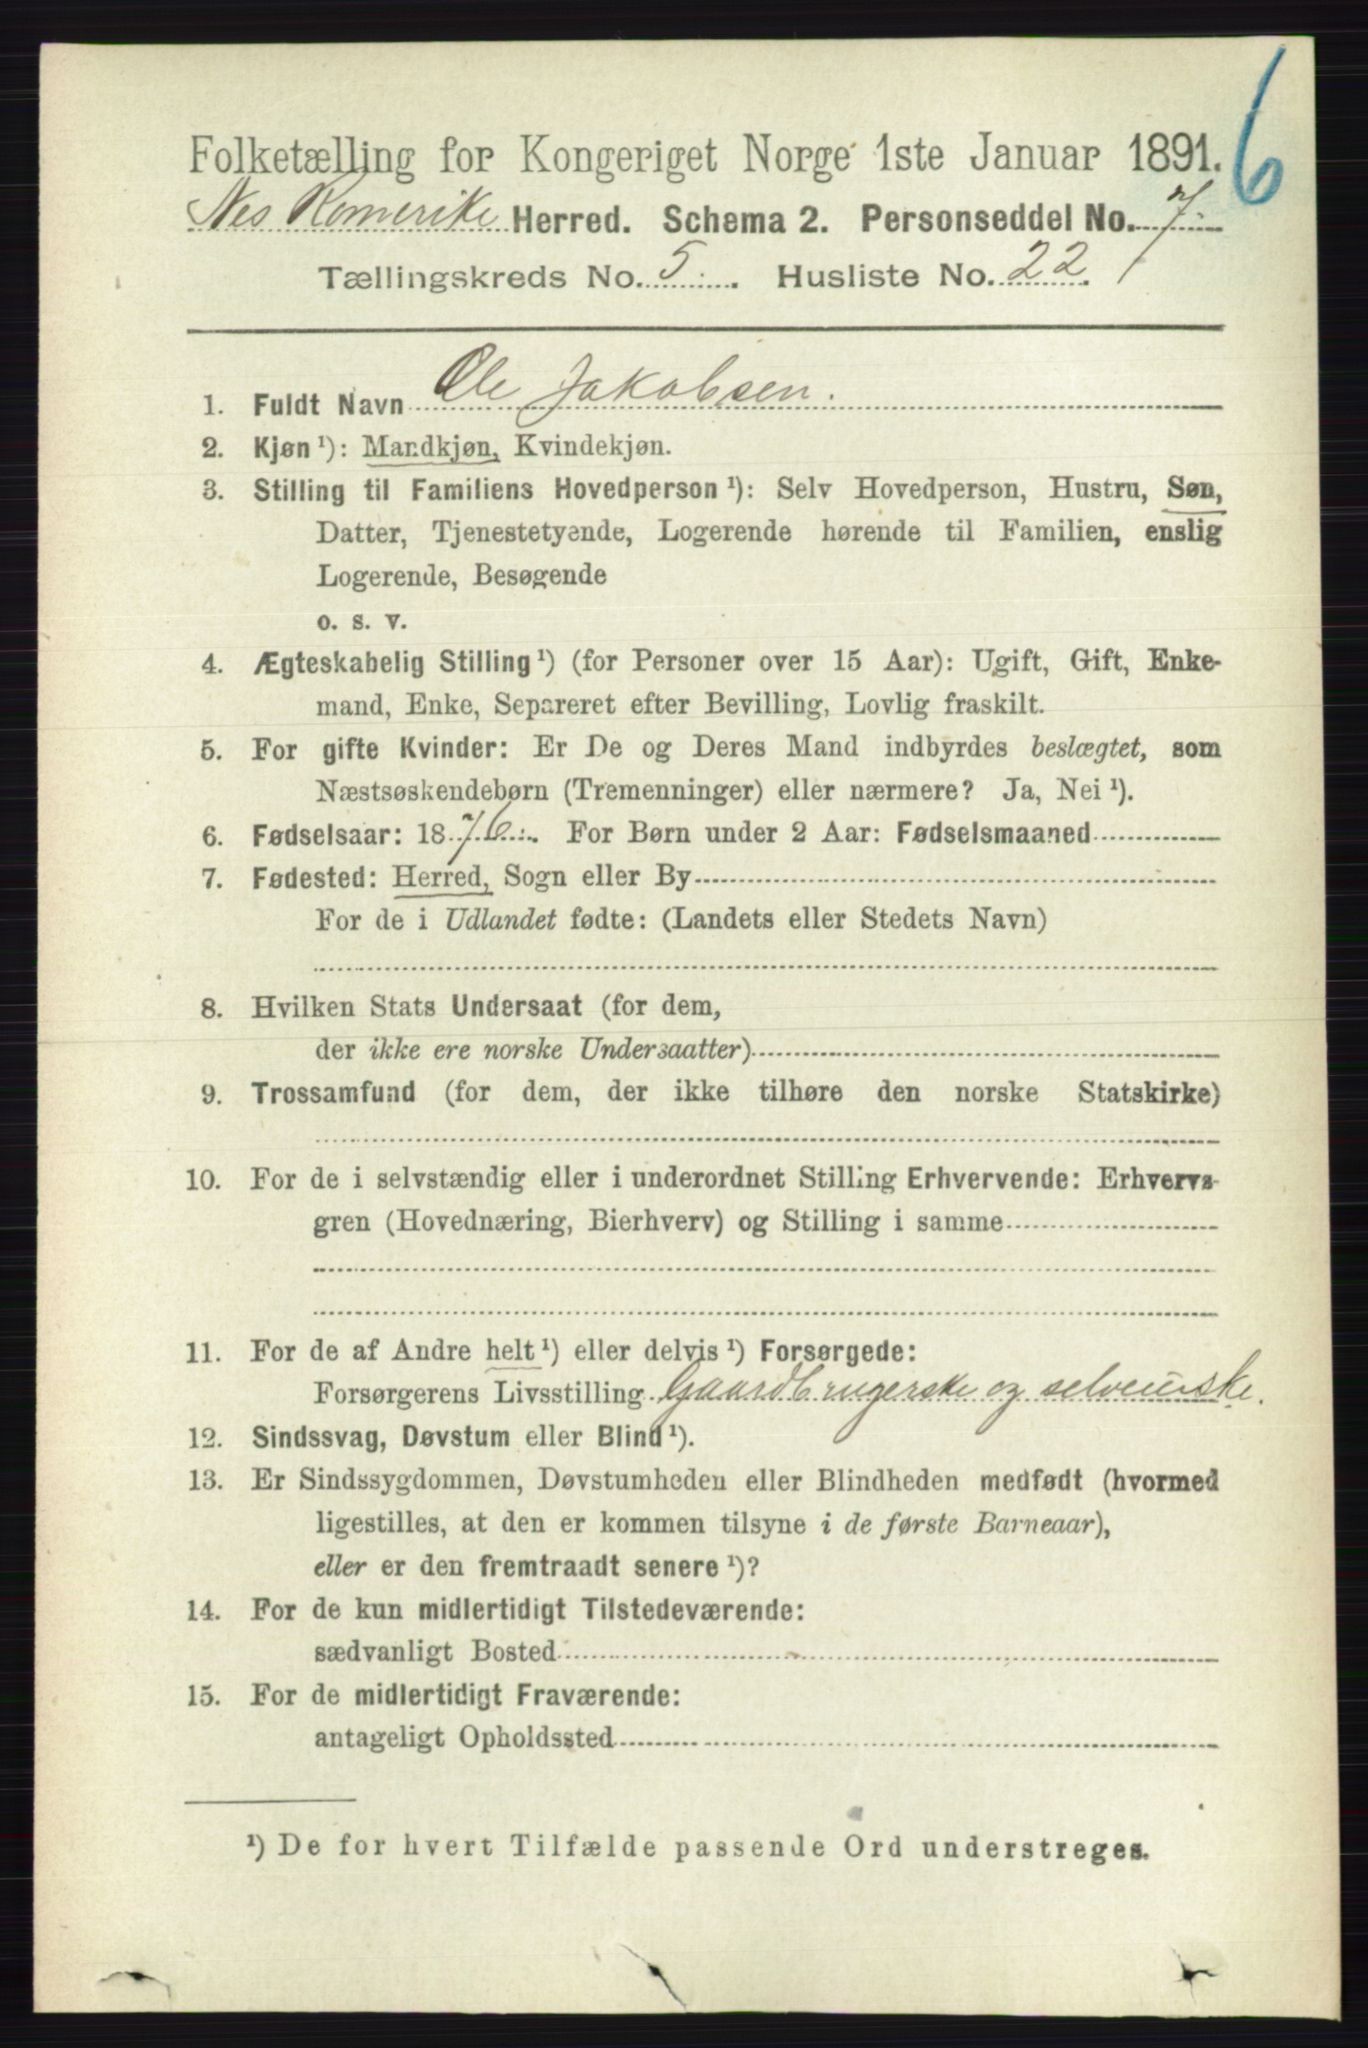 6
Folketælling for Kongeriget Norge 1ste Januar 1891.
Nes Romerike Herred. Schema 2. Personseddel No. 7
Tællingskreds No. 5. Husliste No. 22.
1. Fuldt Navn Ole Jakobsen.
2. Kjøn ¹): Mandkjøn, Kvindekjøn.
3. Stilling til Familiens Hovedperson ¹): Selv Hovedperson, Hustru, Søn,
Datter, Tjenestetyende, Logerende hørende til Familien, enslig
Logerende, Besøgende
o. s. v.
4. Ægteskabelig Stilling ¹) (for Personer over 15 Aar): Ugift, Gift, Enke-
mand, Enke, Separeret efter Bevilling, Lovlig fraskilt.
5. For gifte Kvinder: Er De og Deres Mand indbyrdes beslægtet, som
Næstsøskendebørn (Tremenninger) eller nærmere? Ja, Nei ¹).
6. Fødselsaar: 1876. For Børn under 2 Aar: Fødselsmaaned
7. Fødested: Herred, Sogn eller By
For de i Udlandet fødte: (Landets eller Stedets Navn)
8. Hvilken Stats Undersaat (for dem,
der ikke ere norske Undersaatter)
9. Trossamfund (for dem, der ikke tilhøre den norske Statskirke)
10. For de i selvstændig eller i underordnet Stilling Erhvervende: Erhvervs-
gren (Hovednæring, Bierhverv) og Stilling i samme
11. For de af Andre helt ¹) eller delvis ¹) Forsørgede:
Forsørgerens Livsstilling Gaardbrugerske og selveierske.
12. Sindssvag, Døvstum eller Blind ¹).
13. Er Sindssygdommen, Døvstumheden eller Blindheden medfødt (hvormed
ligestilles, at den er kommen tilsyne i de første Barneaar),
eller er den fremtraadt senere ¹)?
14. For de kun midlertidigt Tilstedeværende:
sædvanligt Bosted
15. For de midlertidigt Fraværende:
antageligt Opholdssted
¹) De for hvert Tilfælde passende Ord understreges.